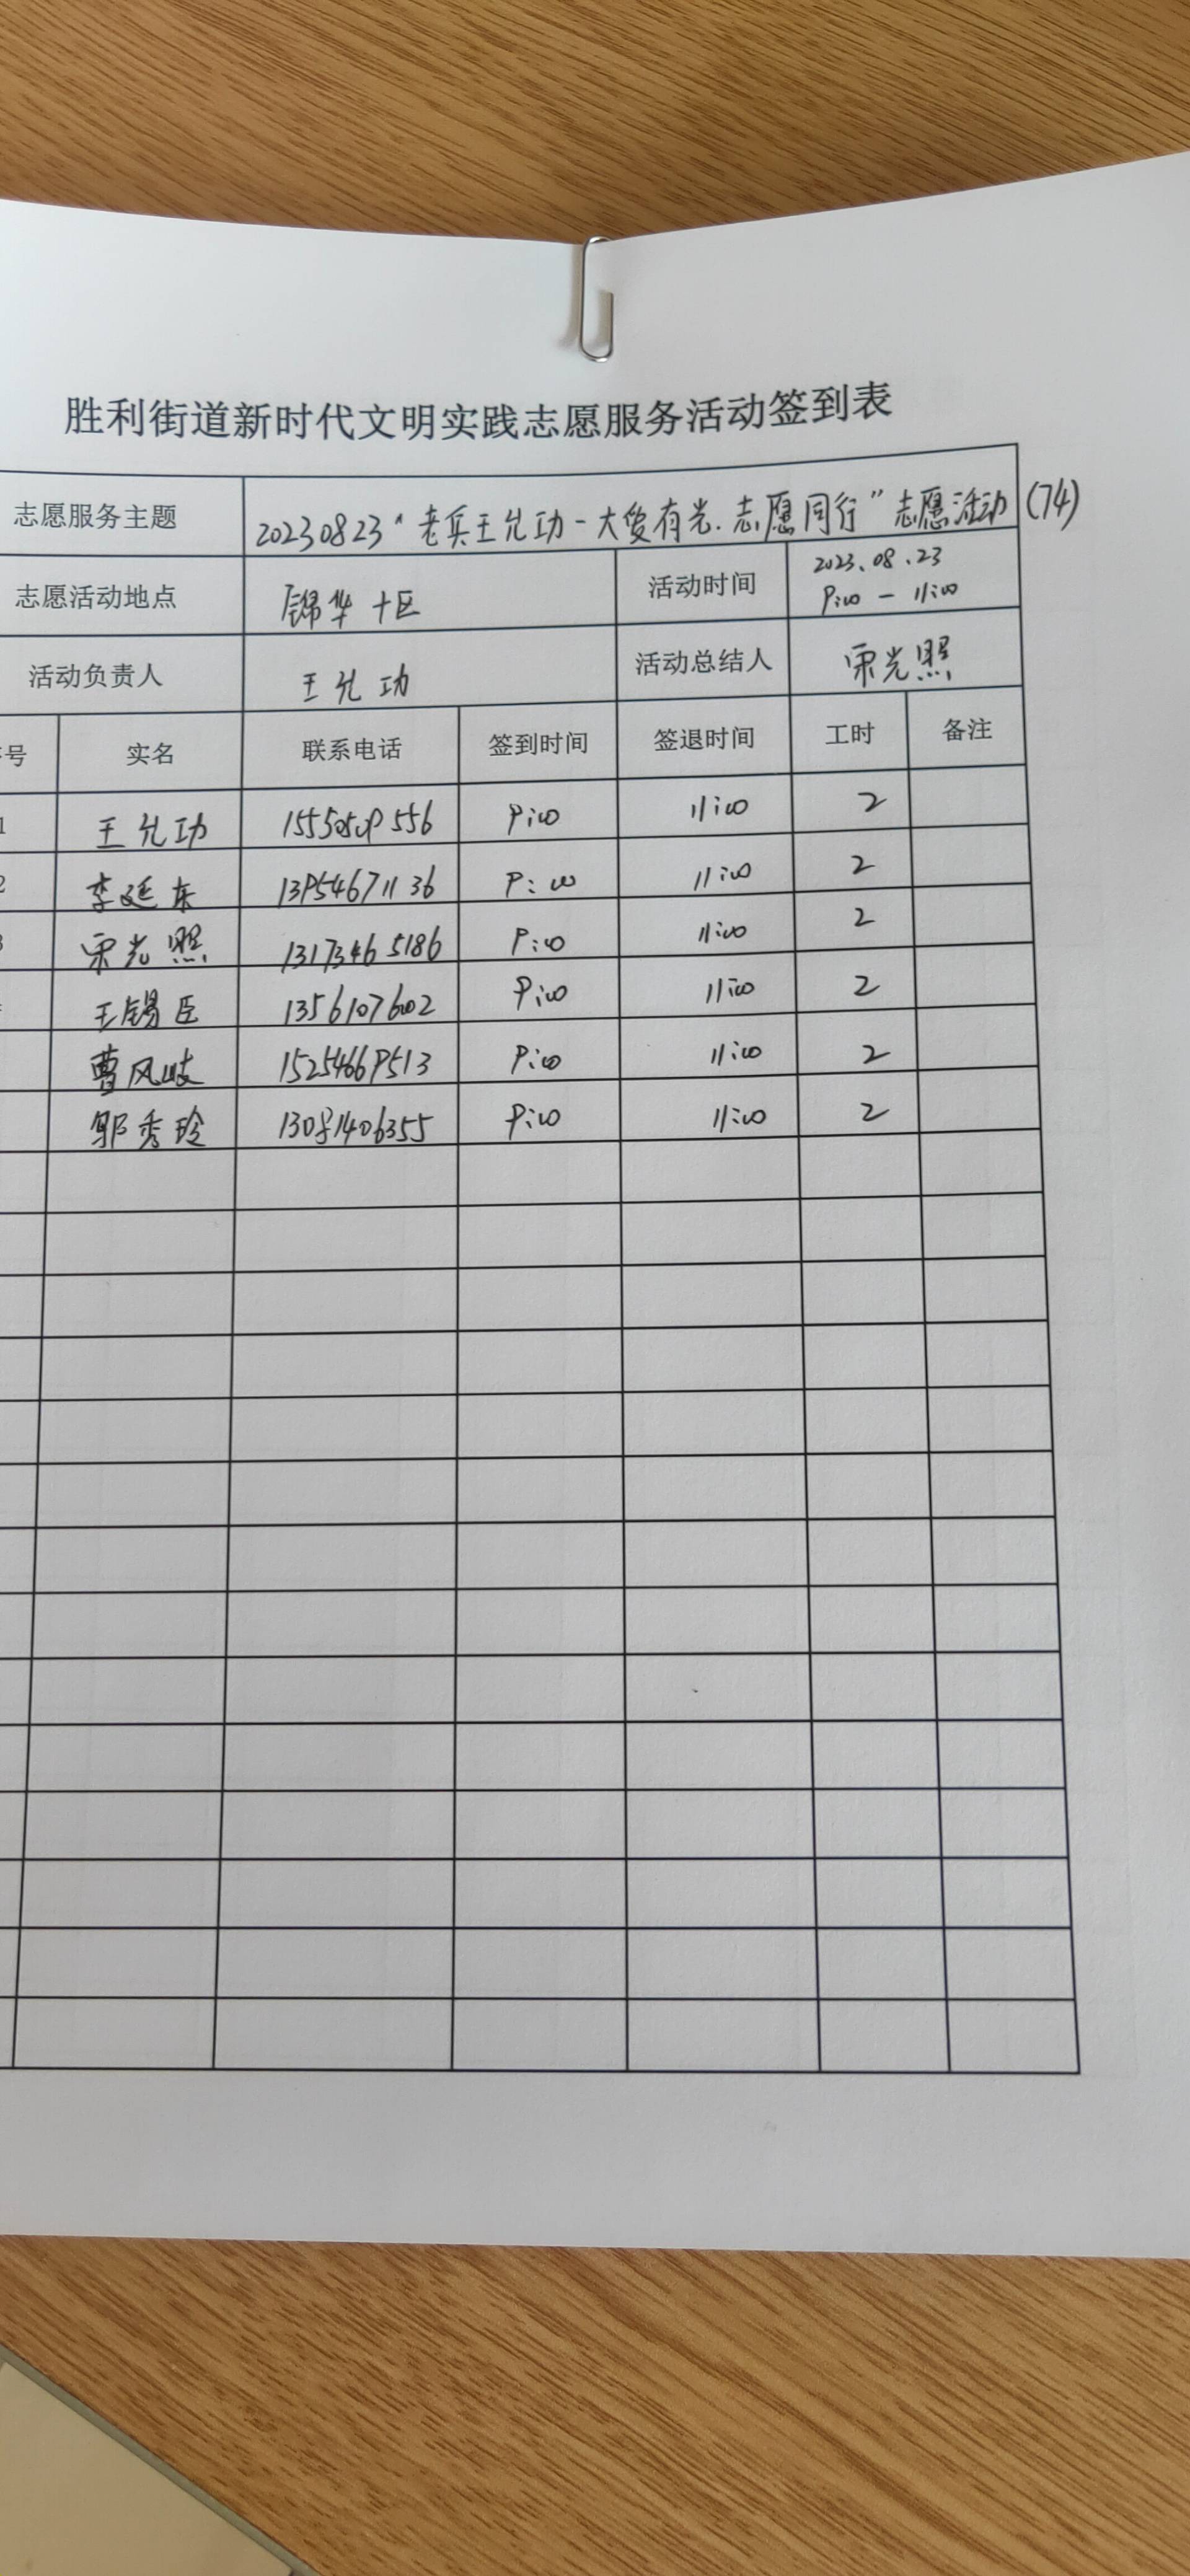 胜利街道新时代文明实践志愿服务活动签到表
志愿服务主题 20230823“老兵王允功-大爱有光.志愿同行”志愿活动 (74)
志愿活动地点 锦华十区 活动时间 2023.08.23
9:00 - 11:00
活动负责人 王允功 活动总结人 荣光照
号 实名 联系电话 签到时间 签退时间 工时 备注
1 王允功 9:00 11:00 2
2 李廷东 13954671136 9:00 11:00 2
荣光照 13173465186 9:00 11:00 2
王锡臣 13561076002 9:00 11:00 2
曹风岐 15254669513 9:00 11:00 2
郭秀玲 13081406355 9:00 11:00 2